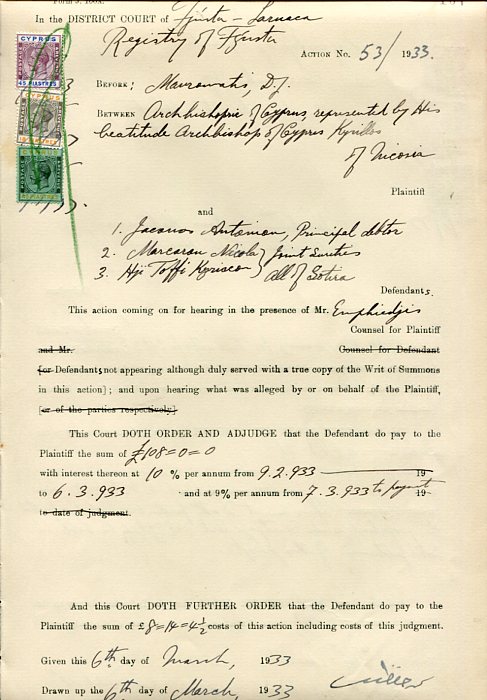 In the DISTRICT COURT of Fgusta - Larnaca
Registry of Fgusta
ACTION No. 53/ 1933.
CYPRUS
45 PIASTRES
CYPRUS
BEFORE; Mavromatis, D.J.
BETWEEN Archbishopric of Cyprus, represented by His
beatitude Archbishop of Cyprus Kyrillos
of Nicosia
Plaintiff
and
1. Antoniou, Principal debtor
2. Nicola } Joint Sureties
3. Hji Toffi Kyriacou } all of Sotira
Defendants.
This action coming on for hearing in the presence of Mr. Emphiedjis
Counsel for Plaintiff
and Mr. Counsel for Defendant
[or Defendants not appearing although duly served with a true copy of the Writ of Summons
in this action]; and upon hearing what was alleged by or on behalf of the Plaintiff,
[or of the parties respectively].
This Court DOTH ORDER AND ADJUDGE that the Defendant do pay to the
Plaintiff the sum of £108=0=0
with interest thereon at 10 % per annum from 9.2.933 19
to 6.3.933 and at 9% per annum from 7.3.933 to payment 19
to date of judgment.
And this Court DOTH FURTHER ORDER that the Defendant do pay to the
Plaintiff the sum of £8=14=4½ costs of this action including costs of this judgment.
Given this 6th day of March, 1933
Drawn up the 6th day of March, 1933